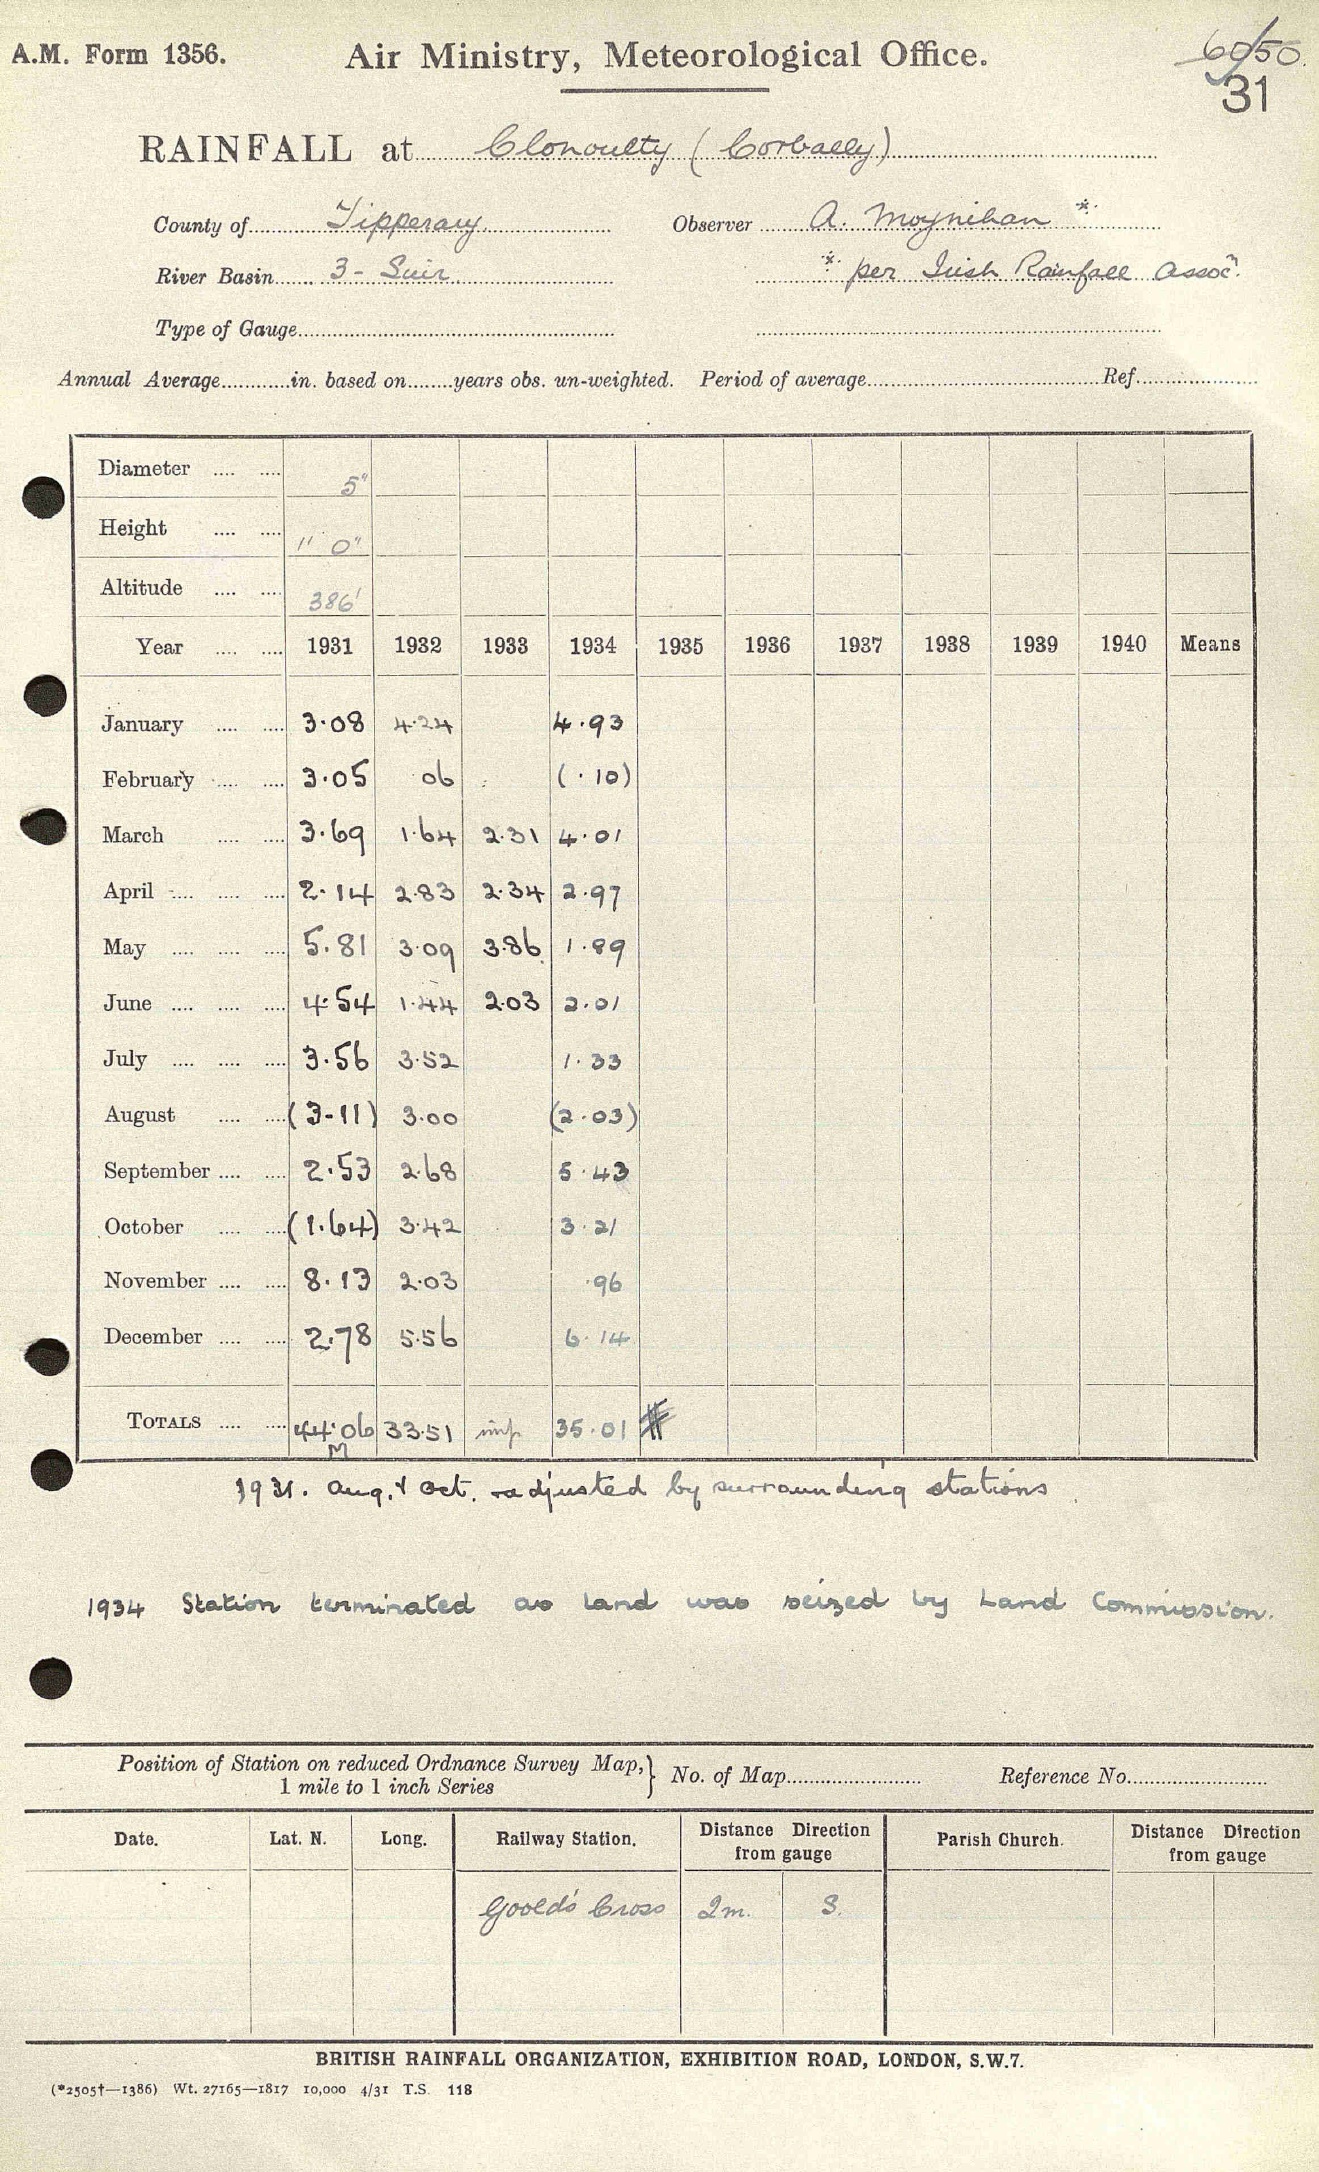 A.M. Form 1356. Air Ministry, Meteorological Office. 60/50.
31
RAINFALL at Clonoulty (Corbally)
County of Tipperary Observer A. Moynihan *
River Basin 3 - Suir * per Irish Rainfall Assocn.
Type of Gauge
Annual Average in. based on years obs. un-weighted. Period of average Ref.
Diameter 5"
Height 1' 0"
Altitude 386'
Year 1931 1932 1933 1934 1935 1936 1937 1938 1939 1940 Means
January 3.08 4.24 4.93
February 3.05 06 (.10)
March 3.69 1.64 2.31 4.01
April 2.14 2.83 2.34 2.97
May 5.81 3.09 3.86 1.89
June 4.54 1.44 2.03 2.01
July 3.56 3.52 1.33
August (3.11) 3.00 (2.03)
September 2.53 2.68 5.43
October (1.64) 3.42 3.21
November 8.13 2.03 .96
December 2.78 5.56 6.14
TOTALS 44.06 33.51 imp. 35.01 #
M
1931. Aug. & Oct. adjusted by surrounding stations
1934 Station terminated as land was seized by Land Commission.
Position of Station on reduced Ordnance Survey Map, } No. of Map Reference No.
1 mile to 1 inch Series
Date. Lat. N. Long. Railway Station. Distance Direction from gauge Parish Church. Distance Direction from gauge
Goold's Cross 2m. S.
BRITISH RAINFALL ORGANIZATION, EXHIBITION ROAD, LONDON, S.W.7.
(*2505†—1386) Wt. 27165—1817 10,000 4/31 T.S. 118